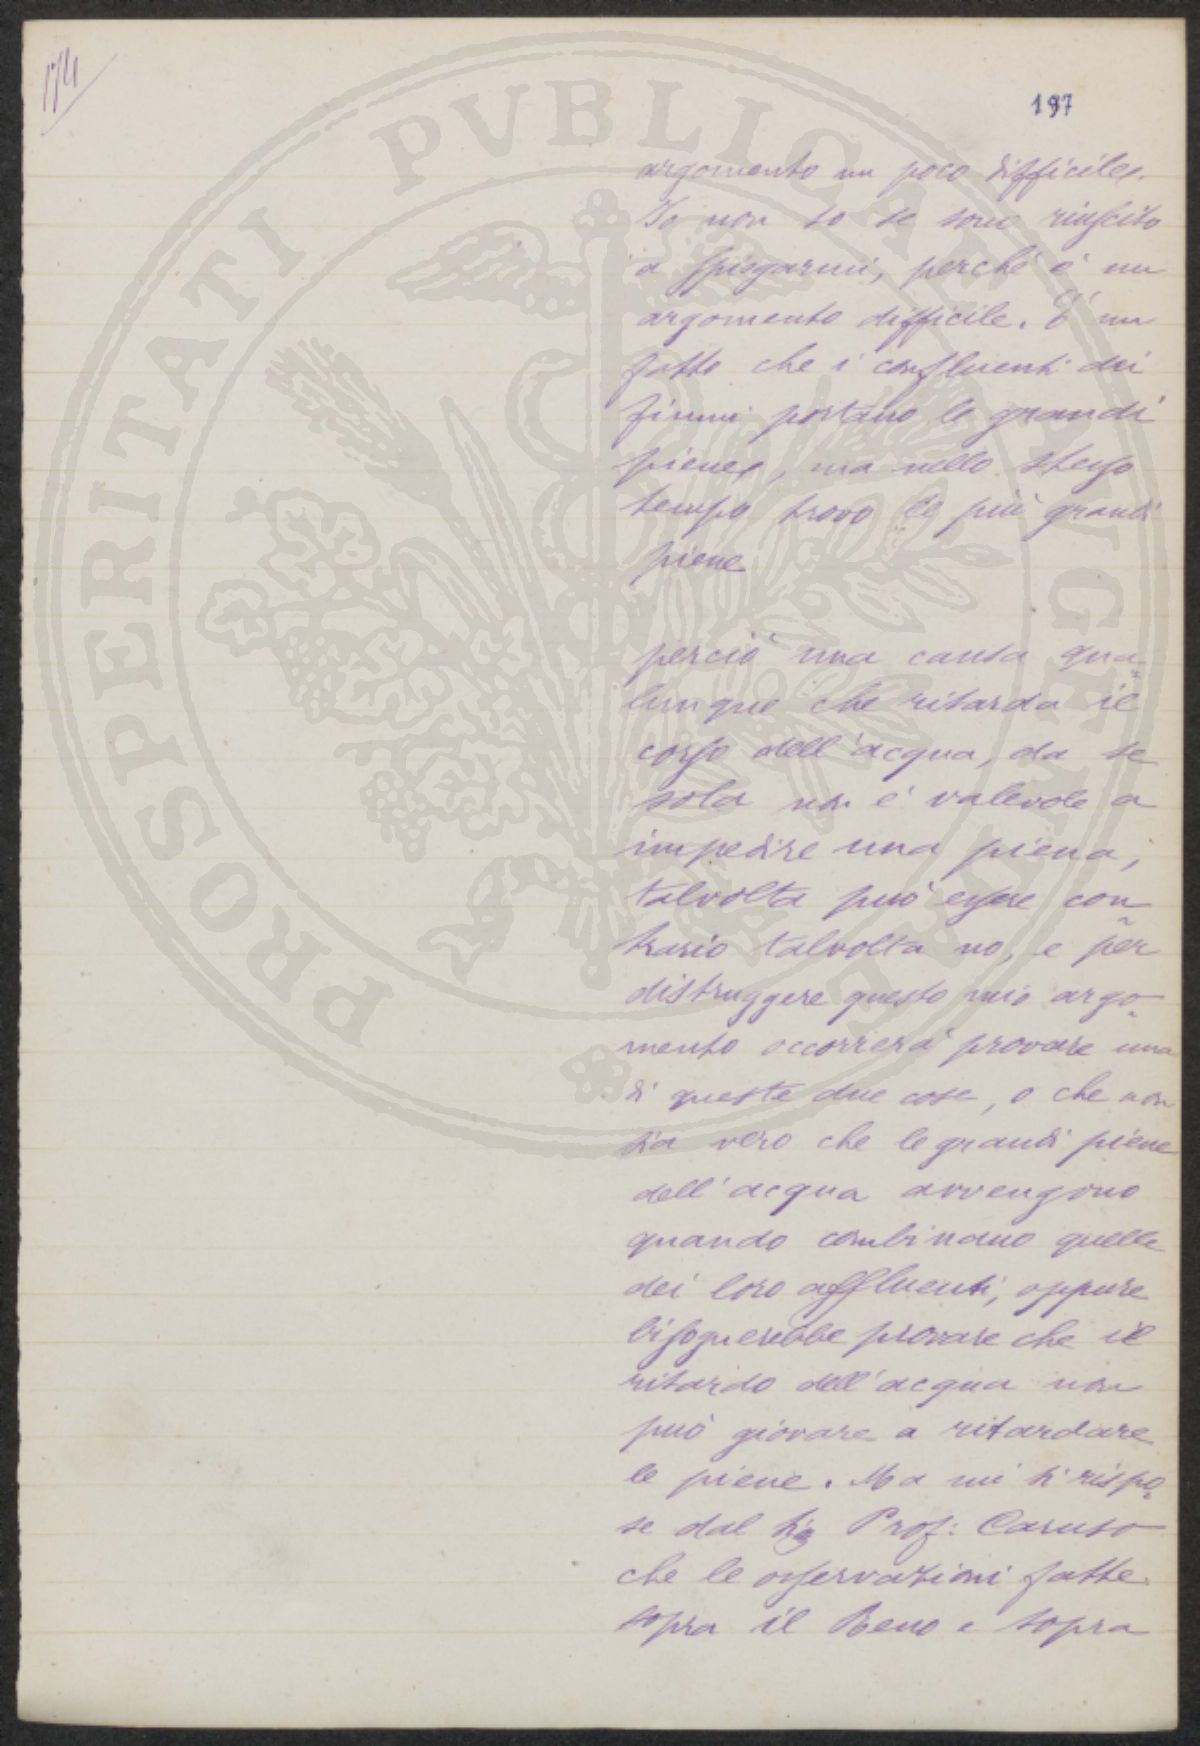 174
197
argomento un poco difficile.
Io non so se sono riuscito
a spiegarmi, perché è un
argomento difficile. É un
fatto che i confluenti dei
fiumi portano le grandi
piene, ma nello stesso
tempo trovo le più grandi
piene
perciò una causa qua-
lunque che ritarda il
corso dell'acqua, da se
sola non è valevole a
impedire una piena,
talvolta può essere con-
trario talvolta no, e per
distruggere questo mio argo-
mento occorrerà provare una
di queste due cose, o che non
sia vero che le grandi piene
dell'acqua avvengono
quando combinano quelle
dei loro affluenti, oppure
bisognerebbe provare che il
ritardo dell'acqua non
può giovare a ritardare
le piene. Ma mi si rispo-
se dal Sig Prof: Caruso
che le osservazioni fatte
sopra il Reno e sopra
PROSPERITATI PUBLICAE AUGENDAE